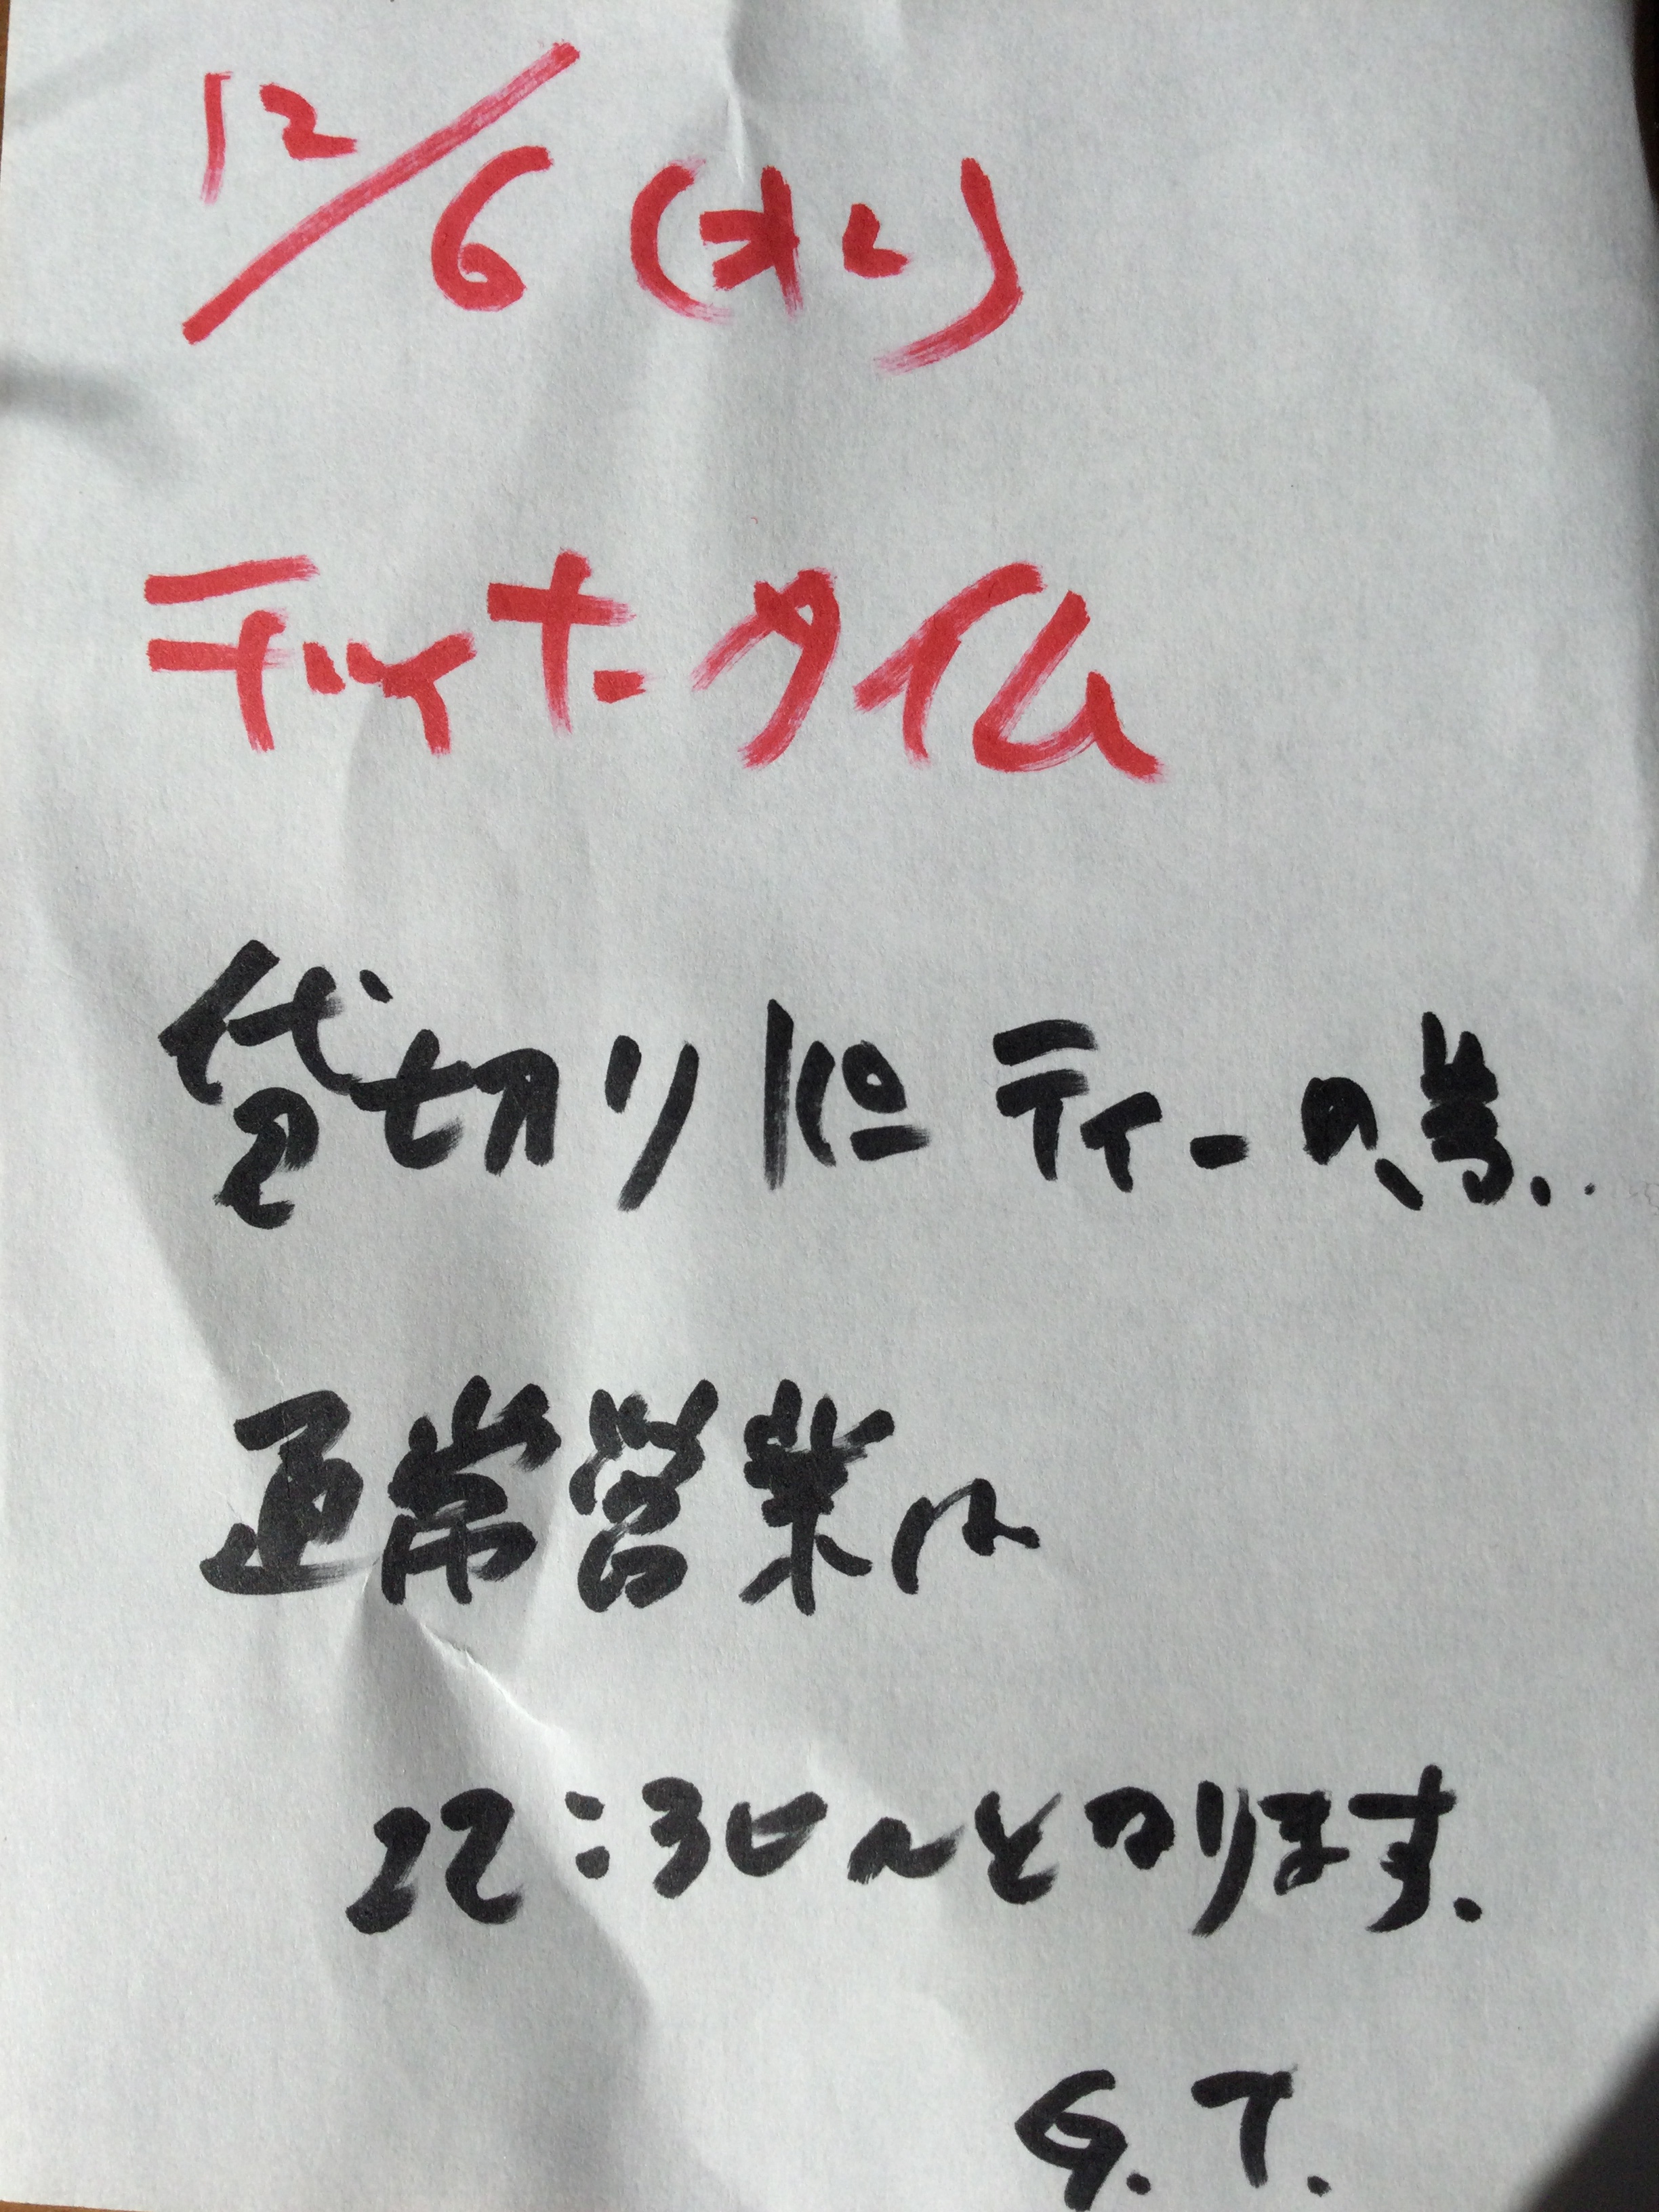 12/6(水)
ディナータイム
貸切りパーティーの為.
通常営業は
22:30〜となります.
G.T.